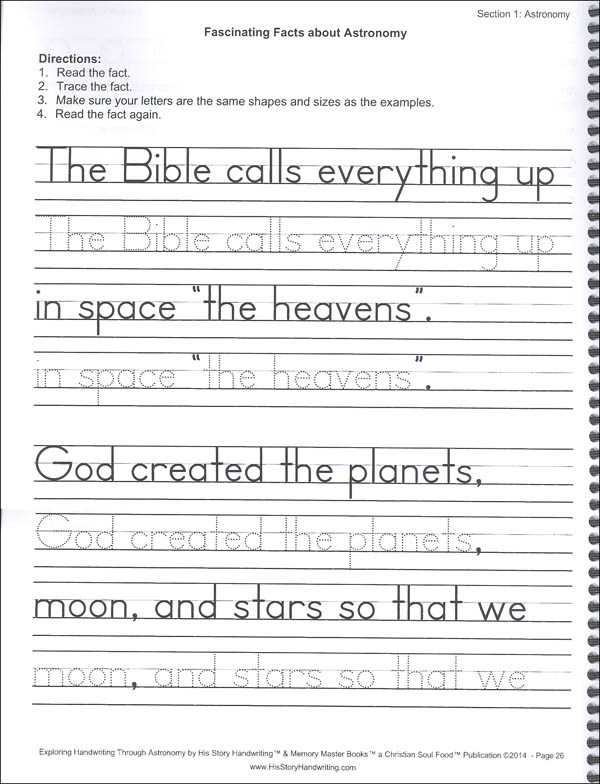 Section 1: Astronomy
Fascinating Facts about Astronomy
Directions:
1. Read the fact.
2. Trace the fact.
3. Make sure your letters are the same shapes and sizes as the examples.
4. Read the fact again.
The Bible calls everything up
The Bible calls everything up
in space “the heavens”.
in space “the heavens”.
God created the planets,
God created the planets,
moon, and stars so that we
moon, and stars so that we
Exploring Handwriting Through Astronomy by His Story Handwriting™ & Memory Master Books™ a Christian Soul Food™ Publication ©2014 - Page 26
www.HisStoryHandwriting.com